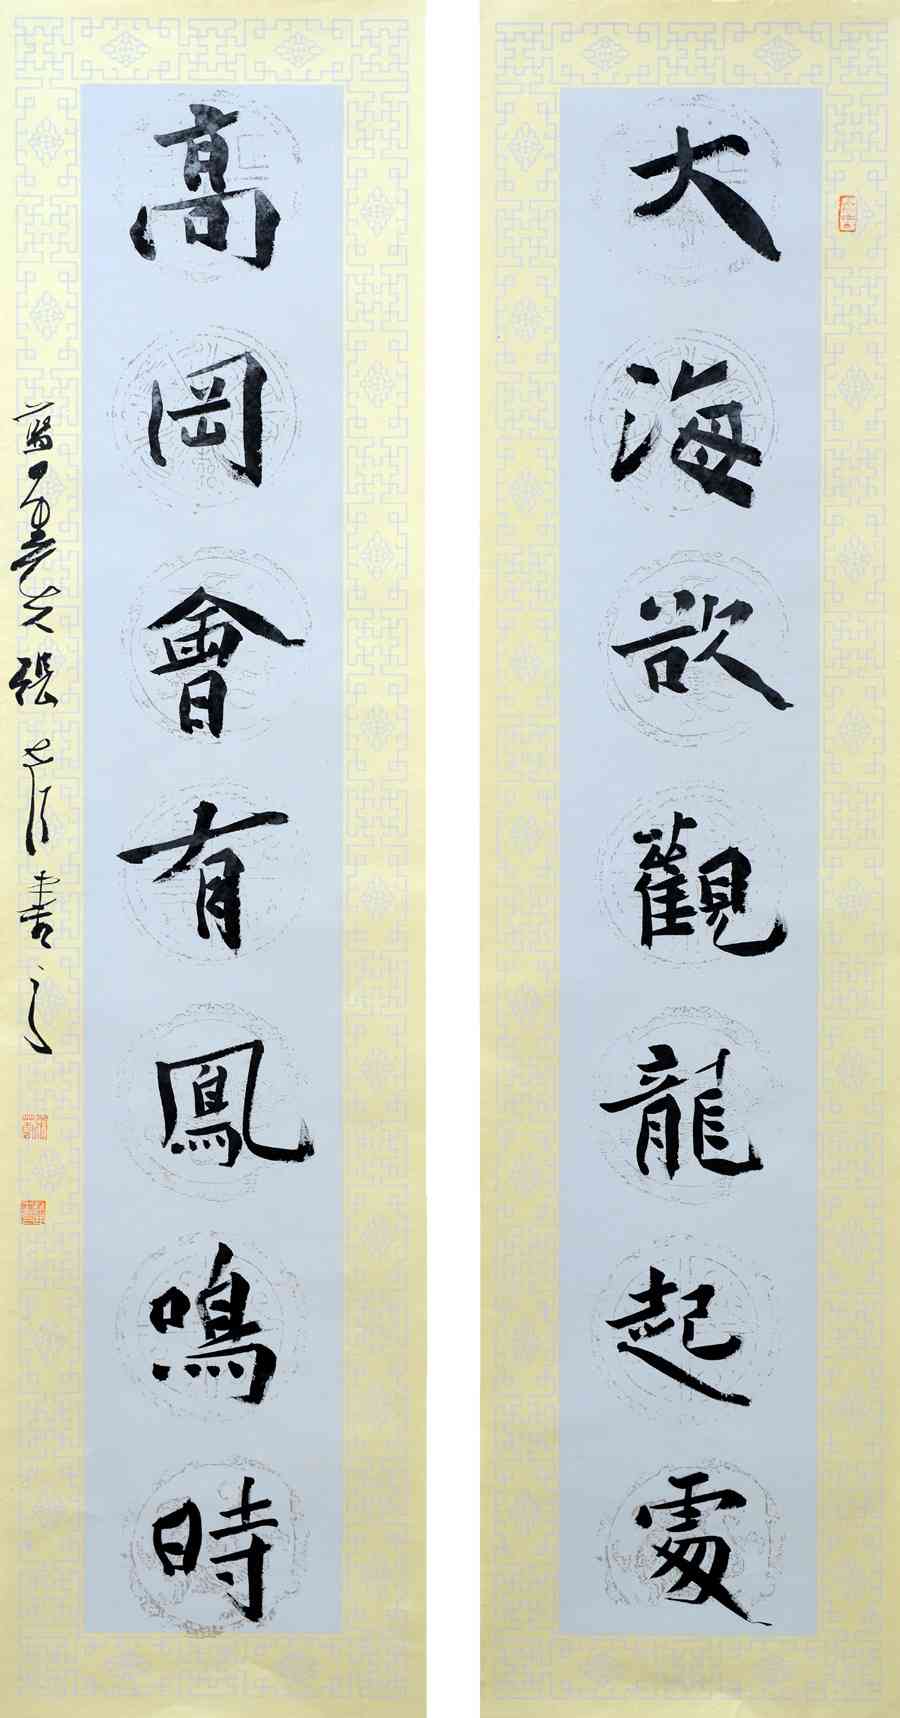 大海欲觀龍起處
高岡會有鳳鳴時
張
書之